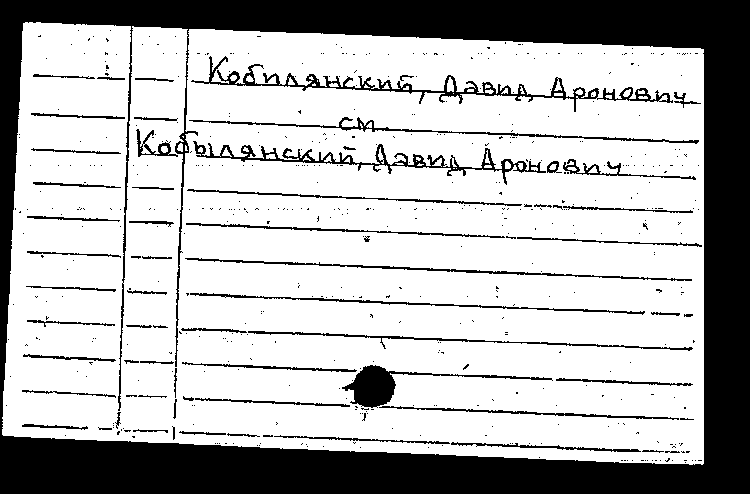 Кобилянский, Давид Аронович
см
Кобылянский, Давид Аронович